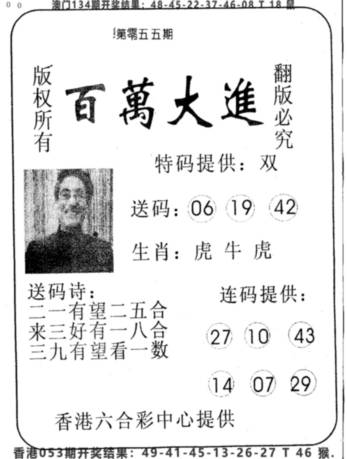 澳门134期开奖结果：48-45-22-37-46-08 T 18 鼠
第零五五期
版权所有
百萬大進
翻版必究
特码提供：双
送码：06 19 42
生肖：虎 牛 虎
送码诗：
二一有望二五合
来三好有一八合
三九有望看一数
连码提供：
27 10 43
14 07 29
香港六合彩中心提供
香港053期开奖结果：49-41-45-13-26-27 T 46 猴.